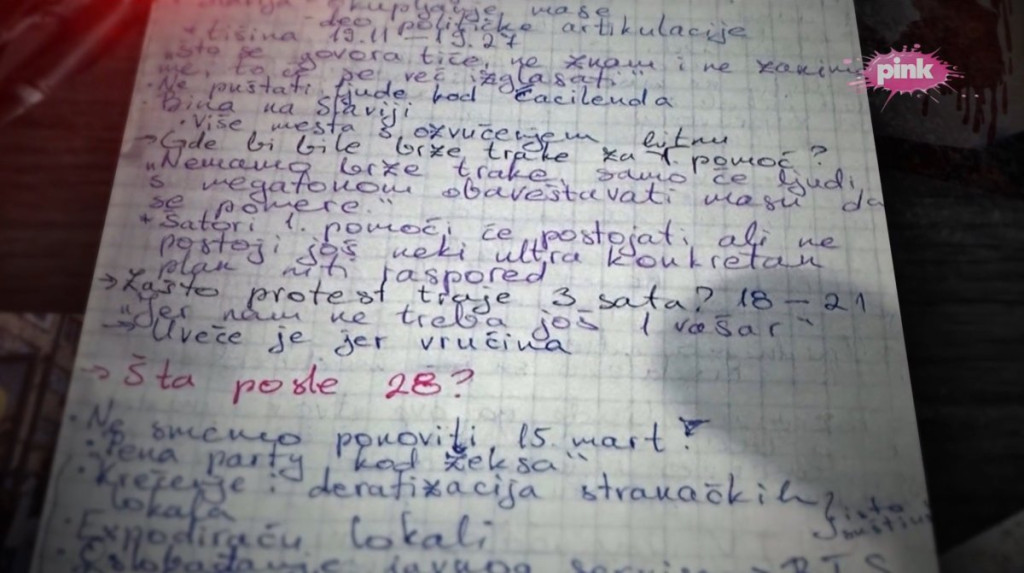 okupljanje mase
- deo političke artikulacije
* tišina 19.11 - 19.27
"što se govora tiče, ne znam i ne zanima
me, to će se već izglasati."
• Ne puštati ljude kod Ćacilenda
• Bina na Slaviji
• Više mesta s ozvučenjem bitnu
→ Gde bi bile brže trake za 1. pomoć?
"Nemamo brže trake, samo će ljudi
s megafonom obaveštavati masu da
se pomere."
* Šatori 1. pomoći će postojati, ali ne
postoji još neki ultra konkretan
plan niti raspored
→ Zašto protest traje 3 sata? 18 - 21
"Jer nam ne treba još 1 vašar"
→ Uveče je jer vrućina
→ Šta posle 28?
• Ne smemo ponoviti 15. mart!
• "Pena party kod Žeksa"
• Krečenje i deratizacija stranačkih
lokala
• Expodiraću lokali
• Oslobađanje javnog servisa → RTS
pink